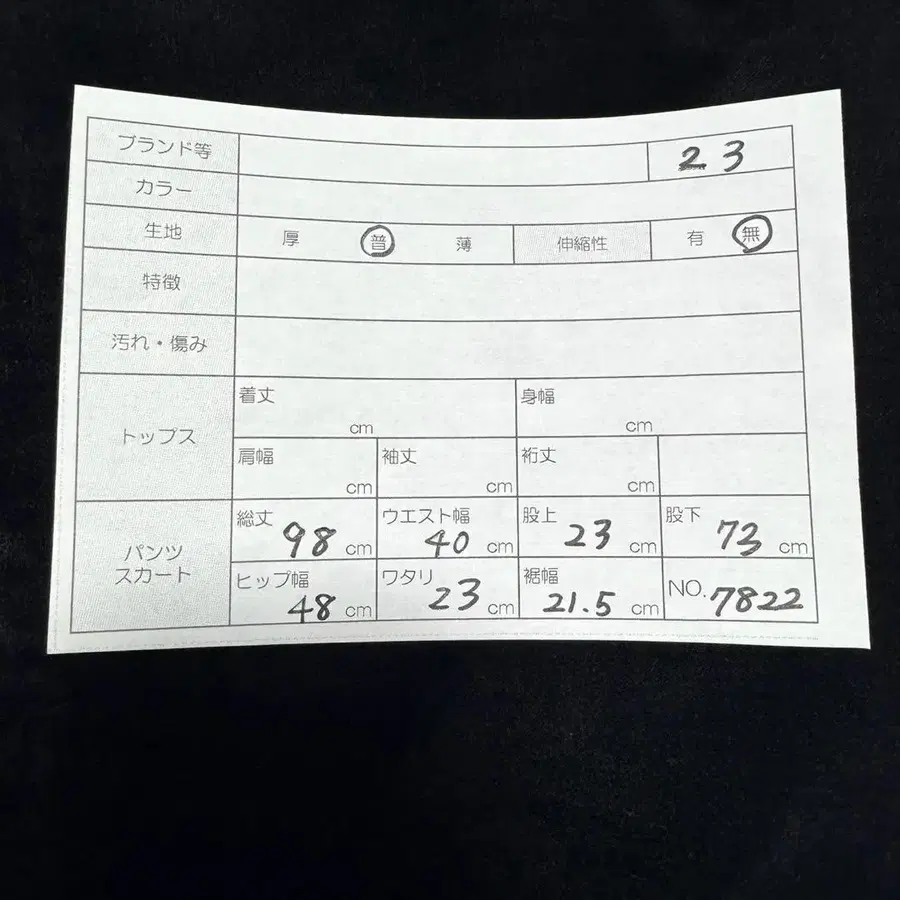 ブランド等 23
カラー
生地 厚 普 薄 伸縮性 有 無
特徴
汚れ・傷み
トップス
着丈 cm 身幅 cm
肩幅 cm 袖丈 cm 裄丈 cm
パンツ
スカート
総丈 98 cm ウエスト幅 40 cm 股上 23 cm 股下 73 cm
ヒップ幅 48 cm ワタリ 23 cm 裾幅 21.5 cm NO. 7822